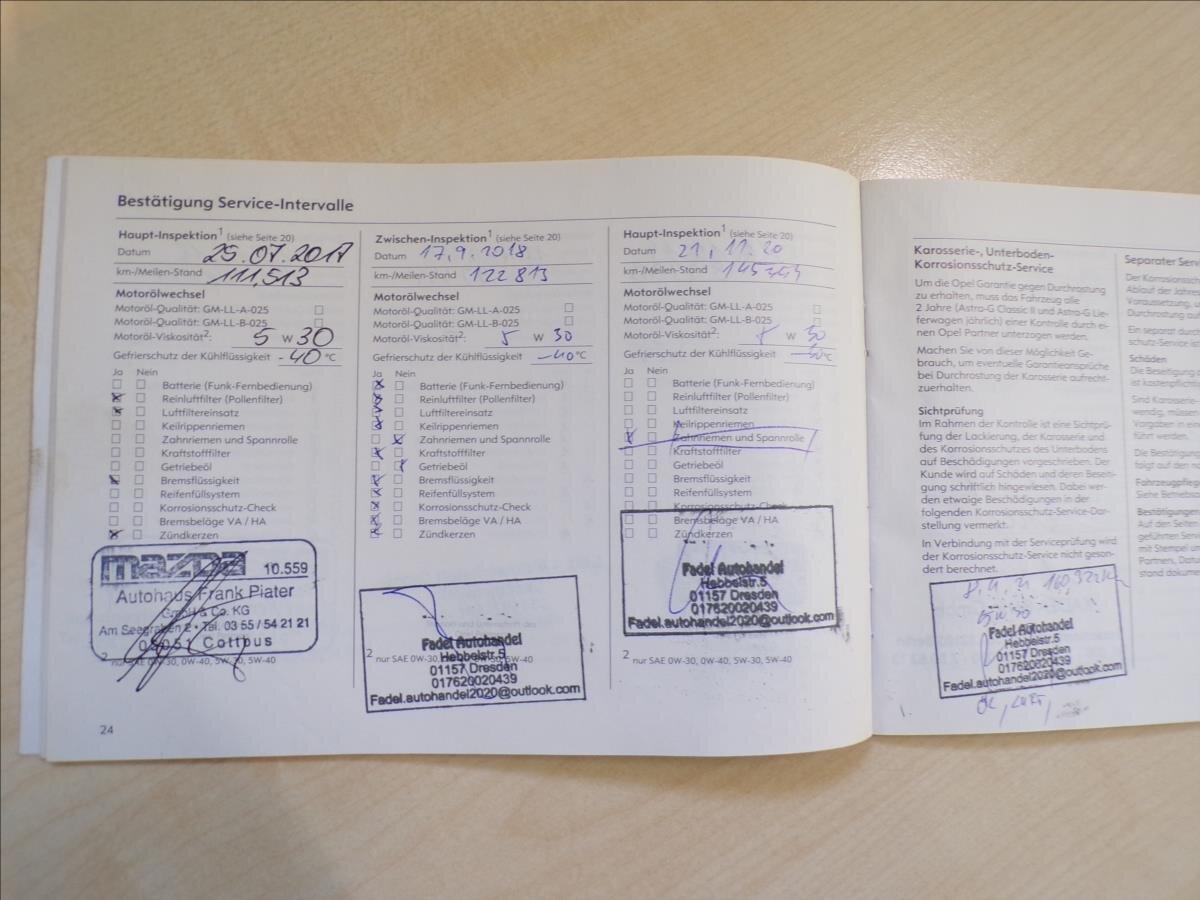 Bestätigung Service-Intervalle
Haupt-Inspektion1 (siehe Seite 20)
Datum 25.07.2017
km-/Meilen-Stand 111,513
Motorölwechsel
Motoröl-Qualität: GM-LL-A-025
Motoröl-Qualität: GM-LL-B-025
Motoröl-Viskosität2: 5 W 30
Gefrierschutz der Kühlflüssigkeit -40 °C
Ja Nein
Batterie (Funk-Fernbedienung)
Reinluftfilter (Pollenfilter)
Luftfiltereinsatz
Keilrippenriemen
Zahnriemen und Spannrolle
Kraftstofffilter
Getriebeöl
Bremsflüssigkeit
Reifenfüllsystem
Korrosionsschutz-Check
Bremsbeläge VA / HA
Zündkerzen
mazda 10.559
Autohaus Frank Piater
GmbH & Co. KG
Am Seegraben 2 • Tel. 03 55 / 54 21 21
03051 Cottbus
2 nur SAE 0W-30, 0W-40, 5W-30, 5W-40
24
Zwischen-Inspektion1 (siehe Seite 20)
Datum 17.9.2018
km-/Meilen-Stand 122 813
Motorölwechsel
Motoröl-Qualität: GM-LL-A-025
Motoröl-Qualität: GM-LL-B-025
Motoröl-Viskosität2: 5 W 30
Gefrierschutz der Kühlflüssigkeit -40 °C
Ja Nein
Batterie (Funk-Fernbedienung)
Reinluftfilter (Pollenfilter)
Luftfiltereinsatz
Keilrippenriemen
Zahnriemen und Spannrolle
Kraftstofffilter
Getriebeöl
Bremsflüssigkeit
Reifenfüllsystem
Korrosionsschutz-Check
Bremsbeläge VA / HA
Zündkerzen
Fadel Autohandel
Hebbelstr.5
01157 Dresden
017620020439
Fadel.autohandel2020@outlook.com
2 nur SAE 0W-30, 5W-40
Haupt-Inspektion1 (siehe Seite 20)
Datum 21.11.20
km-/Meilen-Stand
Motorölwechsel
Motoröl-Qualität: GM-LL-A-025
Motoröl-Qualität: GM-LL-B-025
Motoröl-Viskosität2: 5 W 30
Gefrierschutz der Kühlflüssigkeit °C
Ja Nein
Batterie (Funk-Fernbedienung)
Reinluftfilter (Pollenfilter)
Luftfiltereinsatz
Keilrippenriemen
Zahnriemen und Spannrolle
Kraftstofffilter
Getriebeöl
Bremsflüssigkeit
Reifenfüllsystem
Korrosionsschutz-Check
Bremsbeläge VA / HA
Zündkerzen
Fadel Autohandel
Hebbelstr.5
01157 Dresden
017620020439
Fadel.autohandel2020@outlook.com
2 nur SAE 0W-30, 0W-40, 5W-30, 5W-40
Karosserie-, Unterboden-
Korrosionsschutz-Service
Um die Opel Garantie gegen Durchrostung
zu erhalten, muss das Fahrzeug alle
2 Jahre (Astra-G Classic II und Astra-G Lie-
ferwagen jährlich) einer Kontrolle durch ei-
nen Opel Partner unterzogen werden.
Machen Sie von dieser Möglichkeit Ge-
brauch, um eventuelle Garantieansprüche
bei Durchrostung der Karosserie aufrecht-
zuerhalten.
Sichtprüfung
Im Rahmen der Kontrolle ist eine Sichtprü-
fung der Lackierung, der Karosserie und
des Korrosionsschutzes des Unterbodens
auf Beschädigungen vorgeschrieben. Der
Kunde wird auf Schäden und deren Beseiti-
gung schriftlich hingewiesen. Dabei wer-
den etwaige Beschädigungen in der
folgenden Korrosionsschutz-Service-Dar-
stellung vermerkt.
In Verbindung mit der Serviceprüfung wird
der Korrosionsschutz-Service nicht geson-
dert berechnet.
5W 30
Fadel Autohandel
Hebbelstr.5
01157 Dresden
017620020439
Fadel.autohandel2020@outlook.com
Separater Servic
Der Korrosionssch
Ablauf der Jahres
Voraussetzung,
Durchrostung au
Ein separat durc
schutz-Service ist
Schäden
Die Beseitigung
ist kostenpflichtig
Sind Karosserie-
wendig, müssen
Vorgaben in eine
führt werden.
Die Bestätigung
folgt auf den n
Fahrzeugpflege
Siehe Betriebs
Bestätigungen
Auf den Seiten
geführten Servi
mit Stempel
Partners, Datu
stand dokume